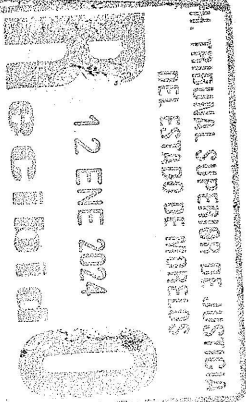 H. TRIBUNAL SUPERIOR DE JUSTICIA
DEL ESTADO DE MORELOS
12 ENE 2024
RecibidO